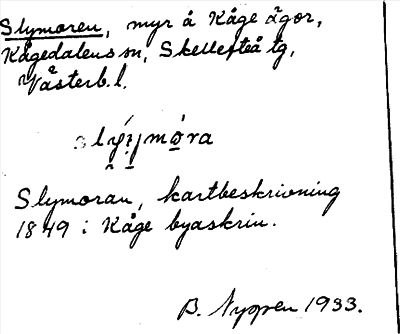 Slymoren, myr å Kåge ägor,
Kågedalens sn, Skellefteå tg,
Västerb. l.
Slymoran, kartbeskrivning
1849 i Kåge byaskrin.
B. Nygren 1933.